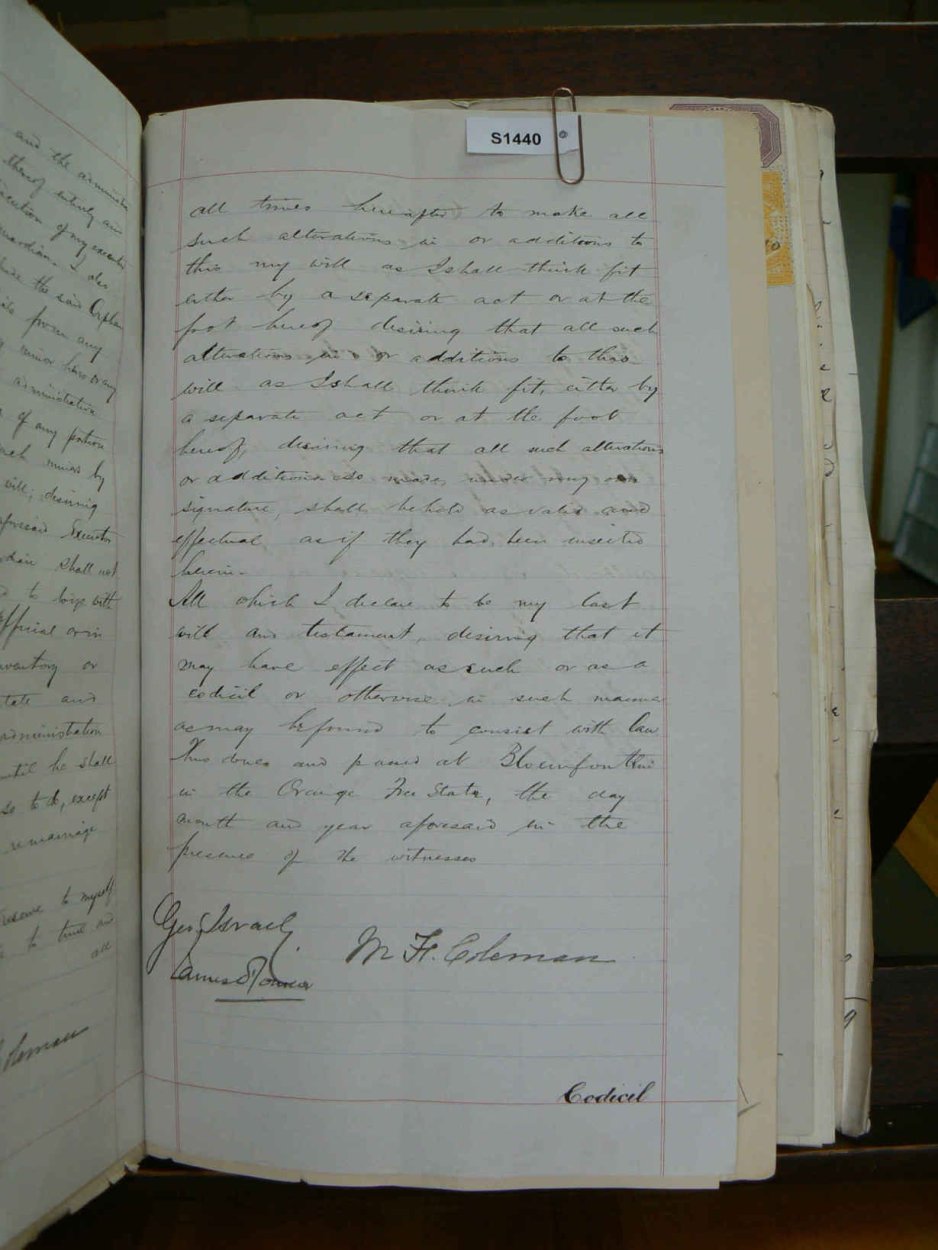 and the administra
thereof entirely and
execution of my executor
guardians I des
the said Orphan
from any
minor heirs or any
administration
of any portion
such minors by
will, desiring
aforesaid Executor
shall not
to lodge with
Official or in
inventory or
tate and
administration
until he shall
so to do, except
remarriage
reserve to myself
to time and
all
Coleman
S1440
all times hereafter to make all
such alterations in or additions to
this my will as I shall think fit
either by a separate act or at the
foot hereof desiring that all such
alterations in or additions to this
will as I shall think fit, either by
a separate act or at the foot
hereof, desiring that all such alterations
or additions so made, under my own
signature, shall be held as valid and
effectual as if they had been inserted
herein.
All which I declare to be my last
will and testament, desiring that it
may have effect as such or as a
codicil or otherwise in such manner
as may be found to consist with law
Thus done and passed at Bloemfontein
in the Orange Free State, the day
month and year aforesaid in the
presence of the witnesses
Geo. Israel
M. H. Coleman
James
Codicil